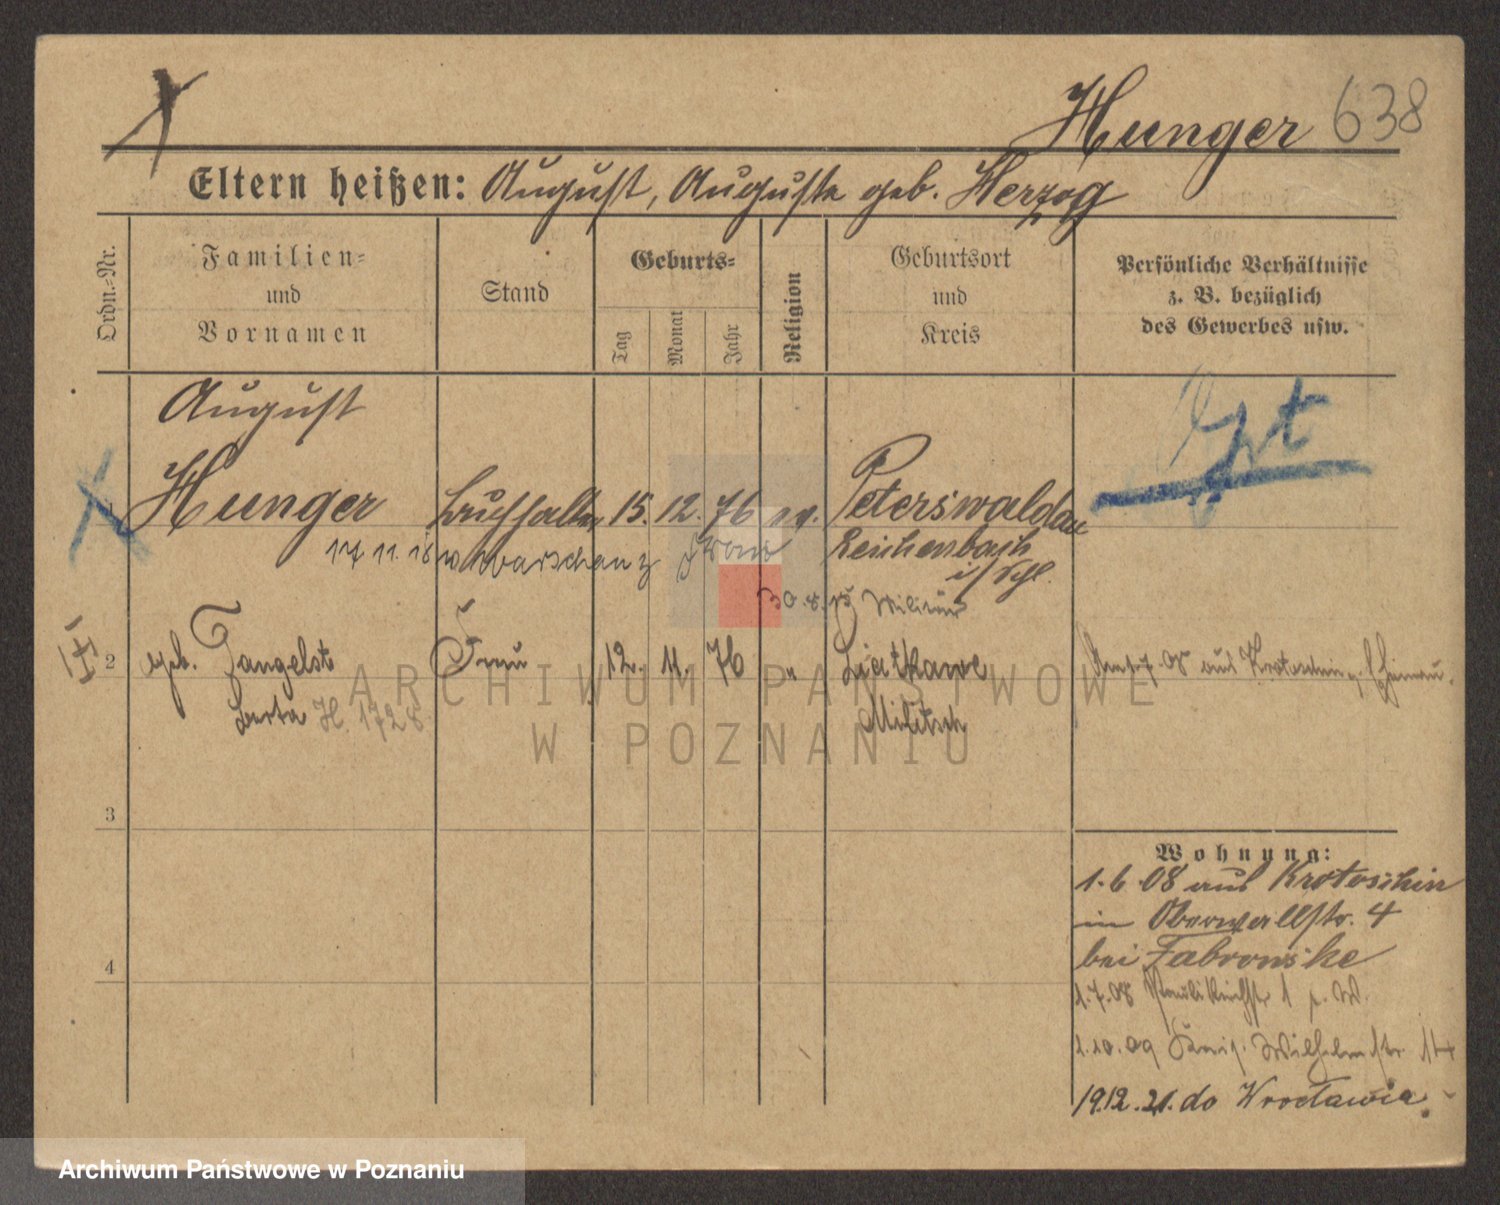 Hunger 638
Eltern heißen: August, Auguste geb. Herzog
Ordn.-Nr.
Familien-
und
Vornamen
Stand
Geburts-
Tag
Monat
Jahr
Religion
Geburtsort
und
Kreis
Persönliche Verhältnisse
z. B. bezüglich
des Gewerbes usw.
August
Hunger Buchhalter 15. 12. 76 ev. Peterswaldau
Reichenbach
i/Schl.
17 11. 18 Warschau z
30. 8. 15 Militär
2 geb. Frau 12. 11. 76 " Liatkawe
Militsch
Berta H. 1728
7. 08 aus Krotoschin
3
4
Wohnung:
1.6.08 aus Krotoschin
in Oberwallstr. 4
bei Fabrowske
1.7.08 Paulikirchstr 1 p. W.
1.10.09 Wilhelmstr. 14
19.12.21. do Wrocławia.
ARCHIWUM PAŃSTWOWE
W POZNANIU
Archiwum Państwowe w Poznaniu